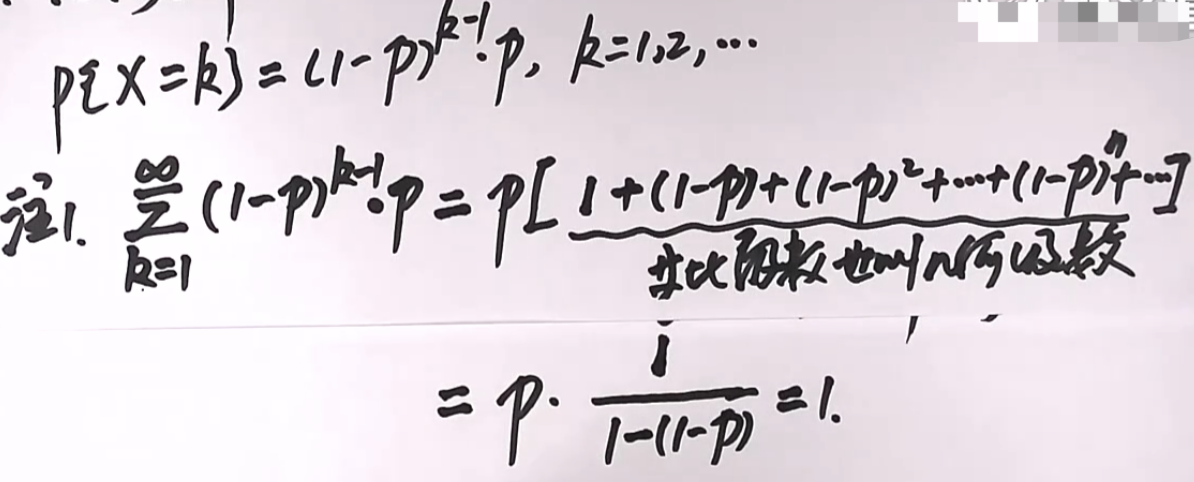 P{X=k}=(1-p)^{k-1}·p, k=1,2,…
注1. \sum_{k=1}^{∞}(1-p)^{k-1}·p=p[1+(1-p)+(1-p)^2+…+(1-p)^n+…]
等比级数也叫几何级数
=p·\frac{1}{1-(1-p)}=1.